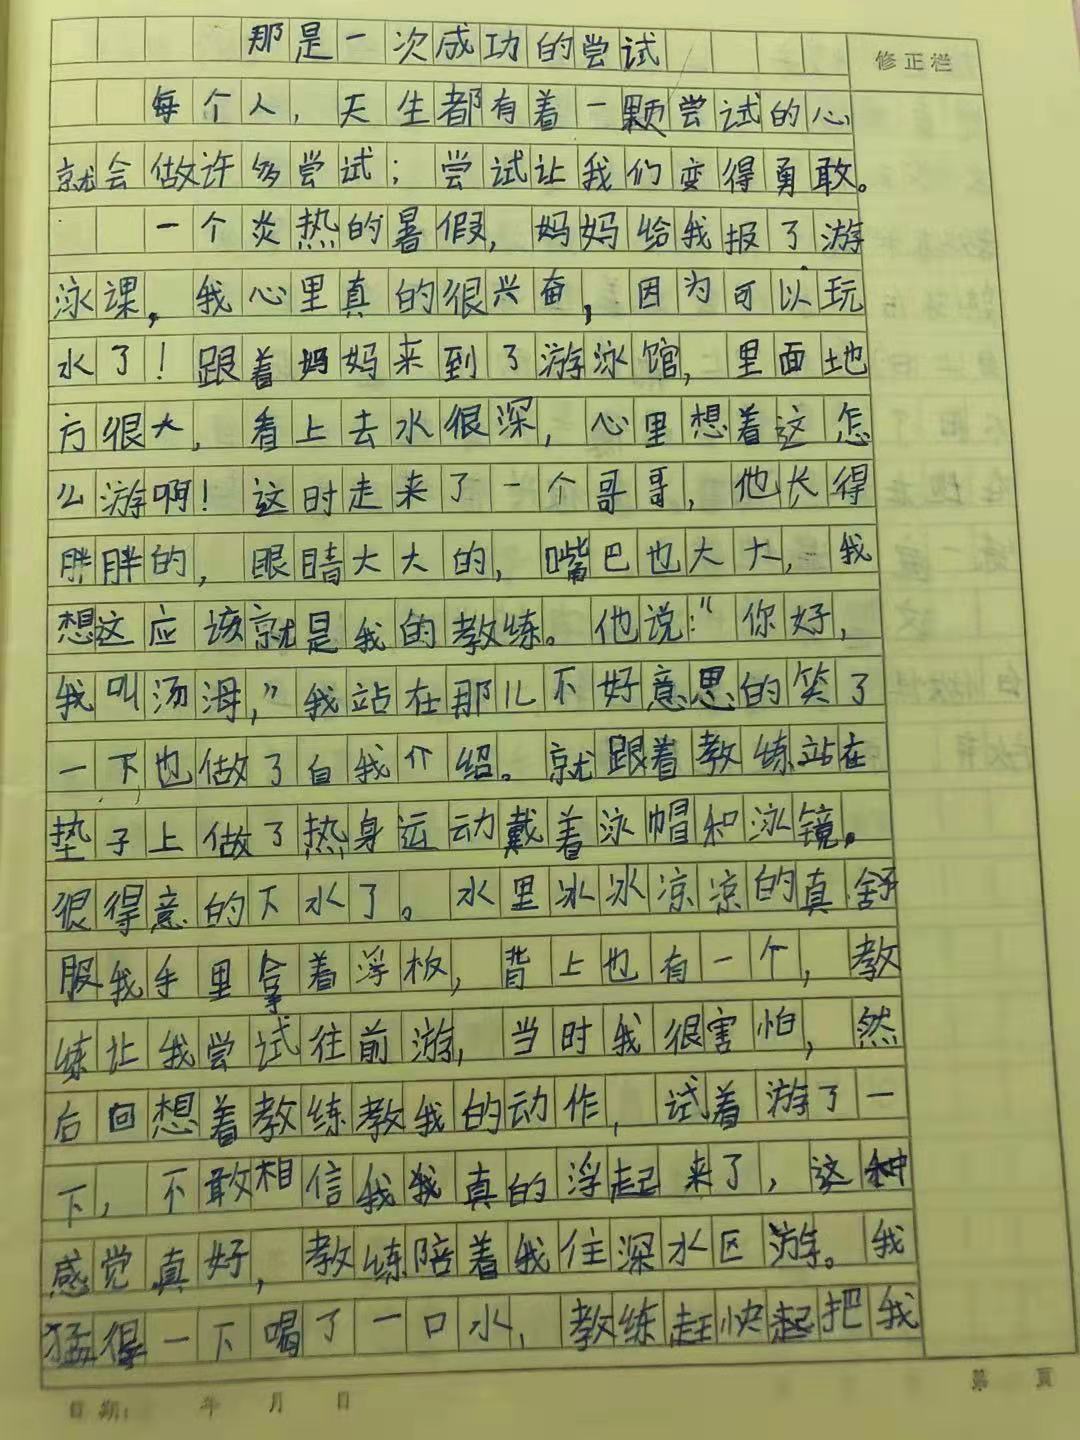 那是一次成功的尝试
修正栏
每个人，天生都有着一颗尝试的心
就会做许多尝试；尝试让我们变得勇敢。
一个炎热的暑假，妈妈给我报了游
泳课，我心里真的很兴奋，因为可以玩
水了！跟着妈妈来到了游泳馆，里面地
方很大，看上去水很深，心里想着这怎
么游啊！这时走来了一个哥哥，他长得
胖胖的，眼睛大大的，嘴巴也大大，我
想这应该就是我的教练。他说：“你好，
我叫汤海，”我站在那儿不好意思的笑了
一下也做了自我介绍。就跟着教练站在
垫子上做了热身运动戴着泳帽和泳镜。
很得意的下水了。水里冰冰凉凉的真舒
服我手里拿着浮板，背上也有一个，教
练让我尝试往前游，当时我很害怕，然
后回想着教练教我的动作，试着游了一
下，不敢相信我我真的浮起来了，这种
感觉真好，教练陪着我住深水区游。我
猛得一下喝了一口水，教练赶快起把我
日期：年月日
第页